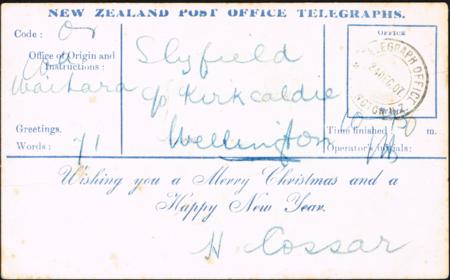 NEW ZEALAND POST OFFICE TELEGRAPHS.
Code :
Office of Origin and
Instructions :
Waihara
Greetings.
Words : 71
Slyfield
c/o Kirkcaldie
Wellington
OFFICE
TELEGRAPH OFFICE
Time finished 10 m.
Operator's initials:
Wishing you a Merry Christmas and a
Happy New Year.
H Cossar